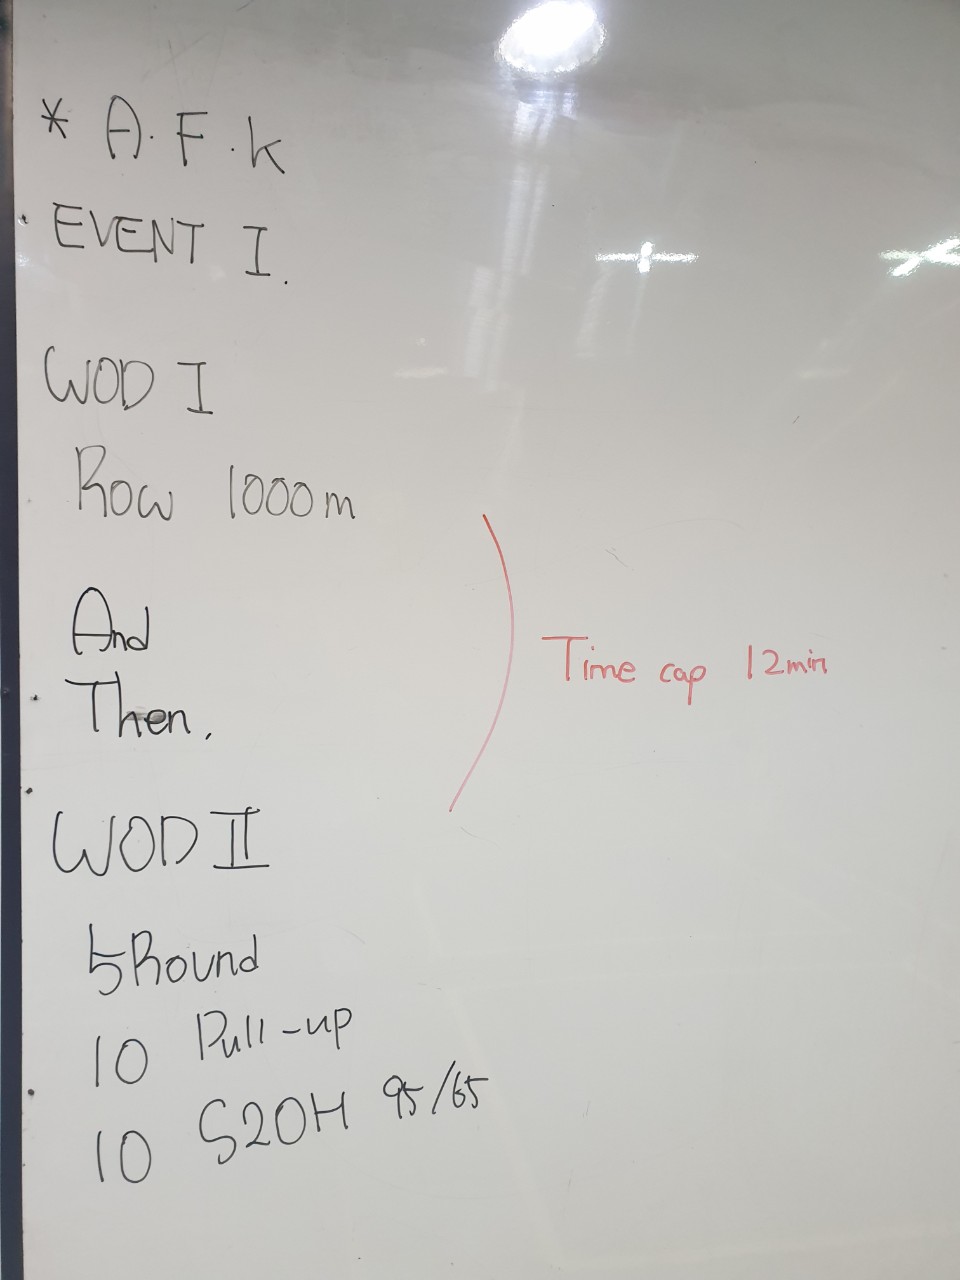 * A.F.k
EVENT I.
WOD I
Row 1000m
And
Then,
Time cap 12min
WOD II
5Round
10 Pull-up
10 S2OH 95/65